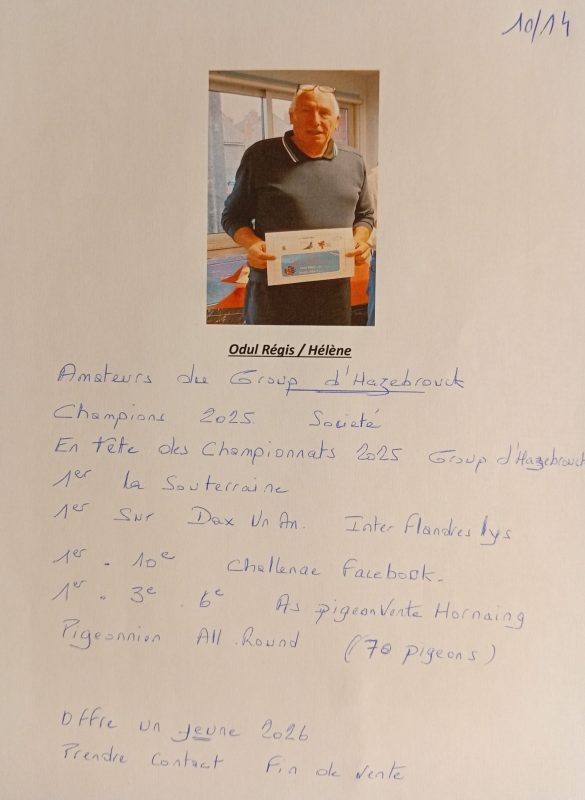 10/14
Odul Régis / Hélène
Amateurs du Group d'Hazebrouck
Champions 2025 Societé
En tête des Championnats 2025 Group d'Hazebrouck
1er La Souterraine
1er Sur Dax Un An. Inter Flandres lys
1er . 10e Challenge Facebook.
1er . 3e . 6e As pigeon Vente Hornaing
Pigeonnier All.Round (70 pigeons)
Offre un jeune 2026
Prendre Contact Fin de Vente